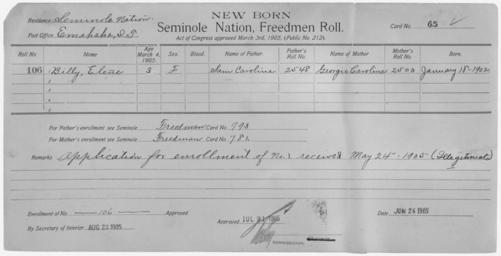 NEW BORN
Residence: Seminole Nation. Seminole Nation, Freedmen Roll. Card No. 65
Post Office: Emahaka, I.T. Act of Congress approved March 3rd, 1905, (Public No. 212).
Roll No. Name Age March 4, 1905. Sex. Blood. Name of Father. Father's Roll No. Name of Mother. Mother's Roll No. Born.
106 Billy, 3 F Sam Carolina 2548 Georgie Carolina 2503 January 18-1902
For Father's enrollment see Seminole Freedman Card No.
For Mother's enrollment see Seminole Freedman Card No.
Remarks Application for enrollment of No. 1 received May 24-1905 (Illegitimate)
Enrollment of No. 106 Approved
Approved 1905 Date JUN 26 1905
By Secretary of Interior AUG 1905
COMMISSIONER.